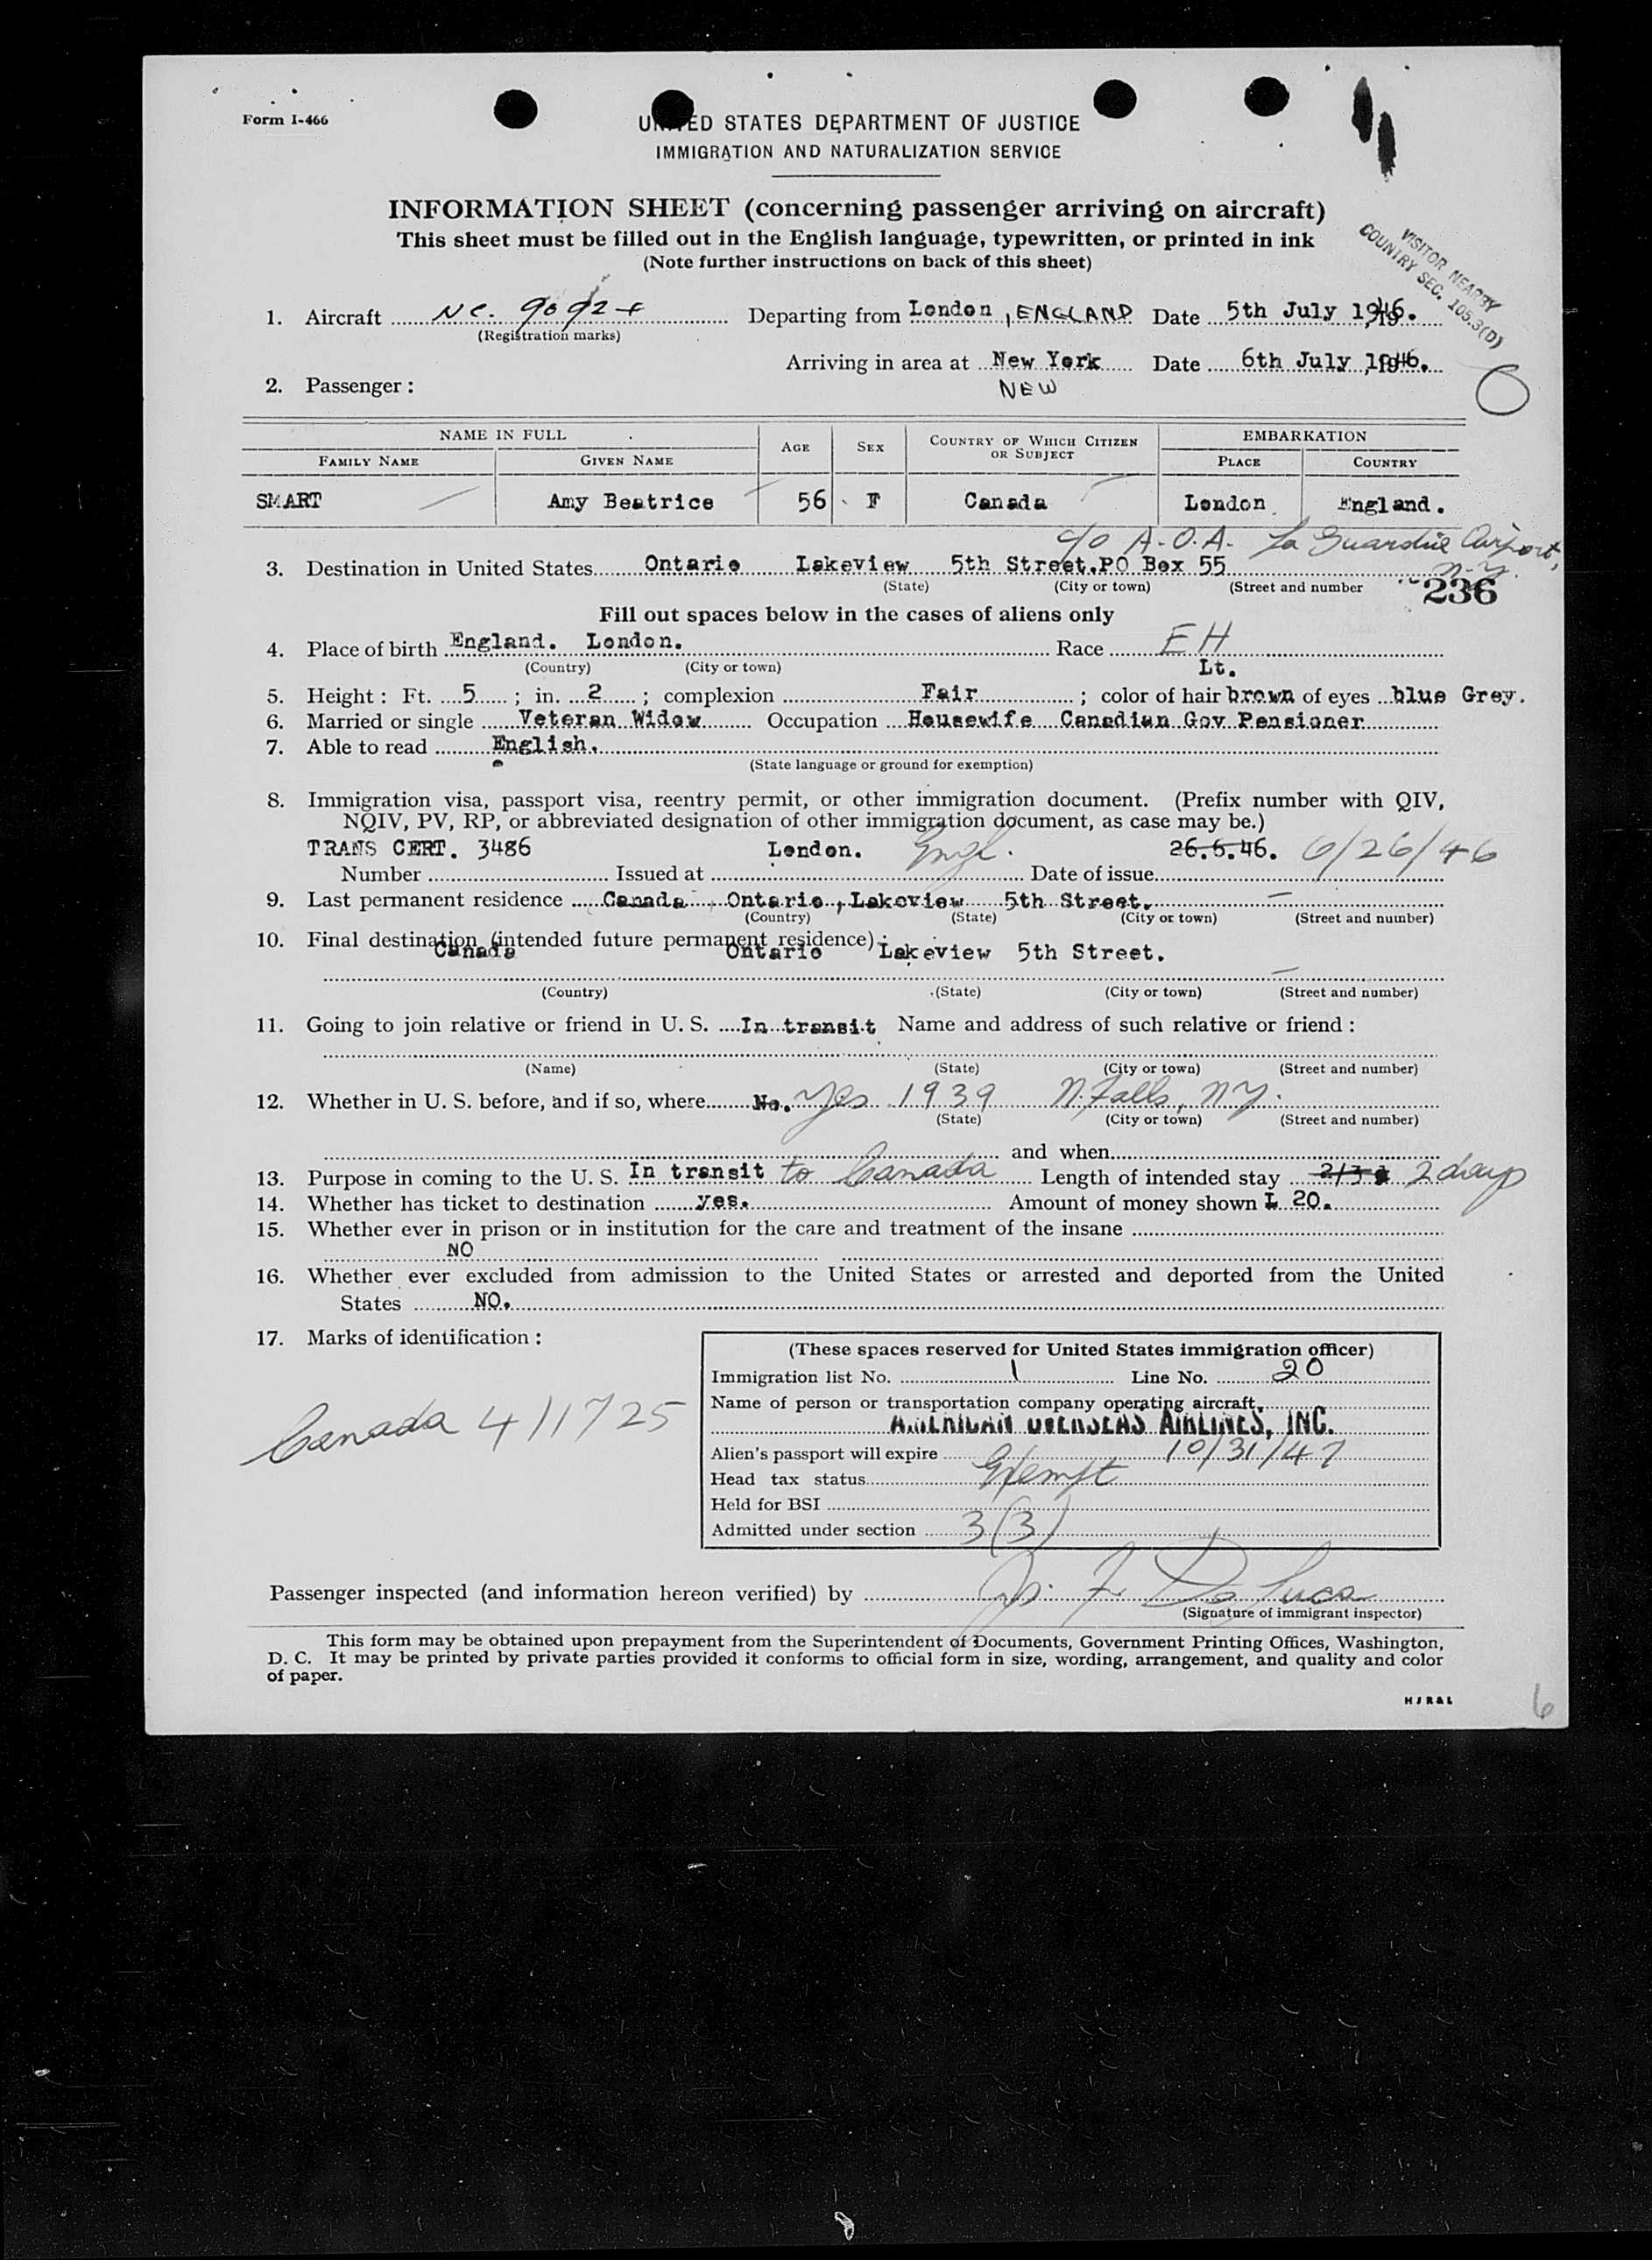 Form I-466
UNITED STATES DEPARTMENT OF JUSTICE
IMMIGRATION AND NATURALIZATION SERVICE
INFORMATION SHEET (concerning passenger arriving on aircraft)
This sheet must be filled out in the English language, typewritten, or printed in ink
(Note further instructions on back of this sheet)
VISITOR NEARBY
COUNTRY SEC. 105.3(D)
1. Aircraft NC. 90924 Departing from London, ENGLAND Date 5th July 1946.
(Registration marks)
Arriving in area at New York Date 6th July 1946.
NEW
2. Passenger :
NAME IN FULL AGE SEX COUNTRY OF WHICH CITIZEN OR SUBJECT EMBARKATION
FAMILY NAME GIVEN NAME PLACE COUNTRY
SMART Amy Beatrice 56 F Canada London England.
c/o A.O.A. La Guardia Airport, N.Y.
3. Destination in United States Ontario Lakeview 5th Street.PO Box 55
(State) (City or town) (Street and number
236
Fill out spaces below in the cases of aliens only
4. Place of birth England. London. Race EH
(Country) (City or town)
Lt.
5. Height : Ft. 5 ; in. 2 ; complexion Fair ; color of hair brown of eyes blue Grey.
6. Married or single Veteran Widow Occupation Housewife Canadian Gov Pensioner
7. Able to read English.
(State language or ground for exemption)
8. Immigration visa, passport visa, reentry permit, or other immigration document. (Prefix number with QIV,
NQIV, PV, RP, or abbreviated designation of other immigration document, as case may be.)
TRANS CERT. 3486 London. Engl. 26.6.46. 6/26/46
Number Issued at Date of issue
9. Last permanent residence Canada Ontario, Lakeview 5th Street.
(Country) (State) (City or town) (Street and number)
10. Final destination (intended future permanent residence) :
Canada Ontario Lakeview 5th Street.
(Country) (State) (City or town) (Street and number)
11. Going to join relative or friend in U. S. In transit Name and address of such relative or friend :
(Name) (State) (City or town) (Street and number)
12. Whether in U. S. before, and if so, where No. Yes 1939 N. Falls, NY.
(State) (City or town) (Street and number)
and when
13. Purpose in coming to the U. S. In transit to Canada Length of intended stay 2/3 2 days
14. Whether has ticket to destination yes. Amount of money shown £ 20.
15. Whether ever in prison or in institution for the care and treatment of the insane
NO
16. Whether ever excluded from admission to the United States or arrested and deported from the United
States NO.
17. Marks of identification :
Canada 4/17/25
(These spaces reserved for United States immigration officer)
Immigration list No. 1 Line No. 20
Name of person or transportation company operating aircraft
AMERICAN OVERSEAS AIRLINES, INC.
Alien's passport will expire 10/31/47
Head tax status Exempt
Held for BSI
Admitted under section 3(3)
Passenger inspected (and information hereon verified) by F. De Luca
(Signature of immigrant inspector)
This form may be obtained upon prepayment from the Superintendent of Documents, Government Printing Offices, Washington,
D. C. It may be printed by private parties provided it conforms to official form in size, wording, arrangement, and quality and color
of paper.
HJR&L
6